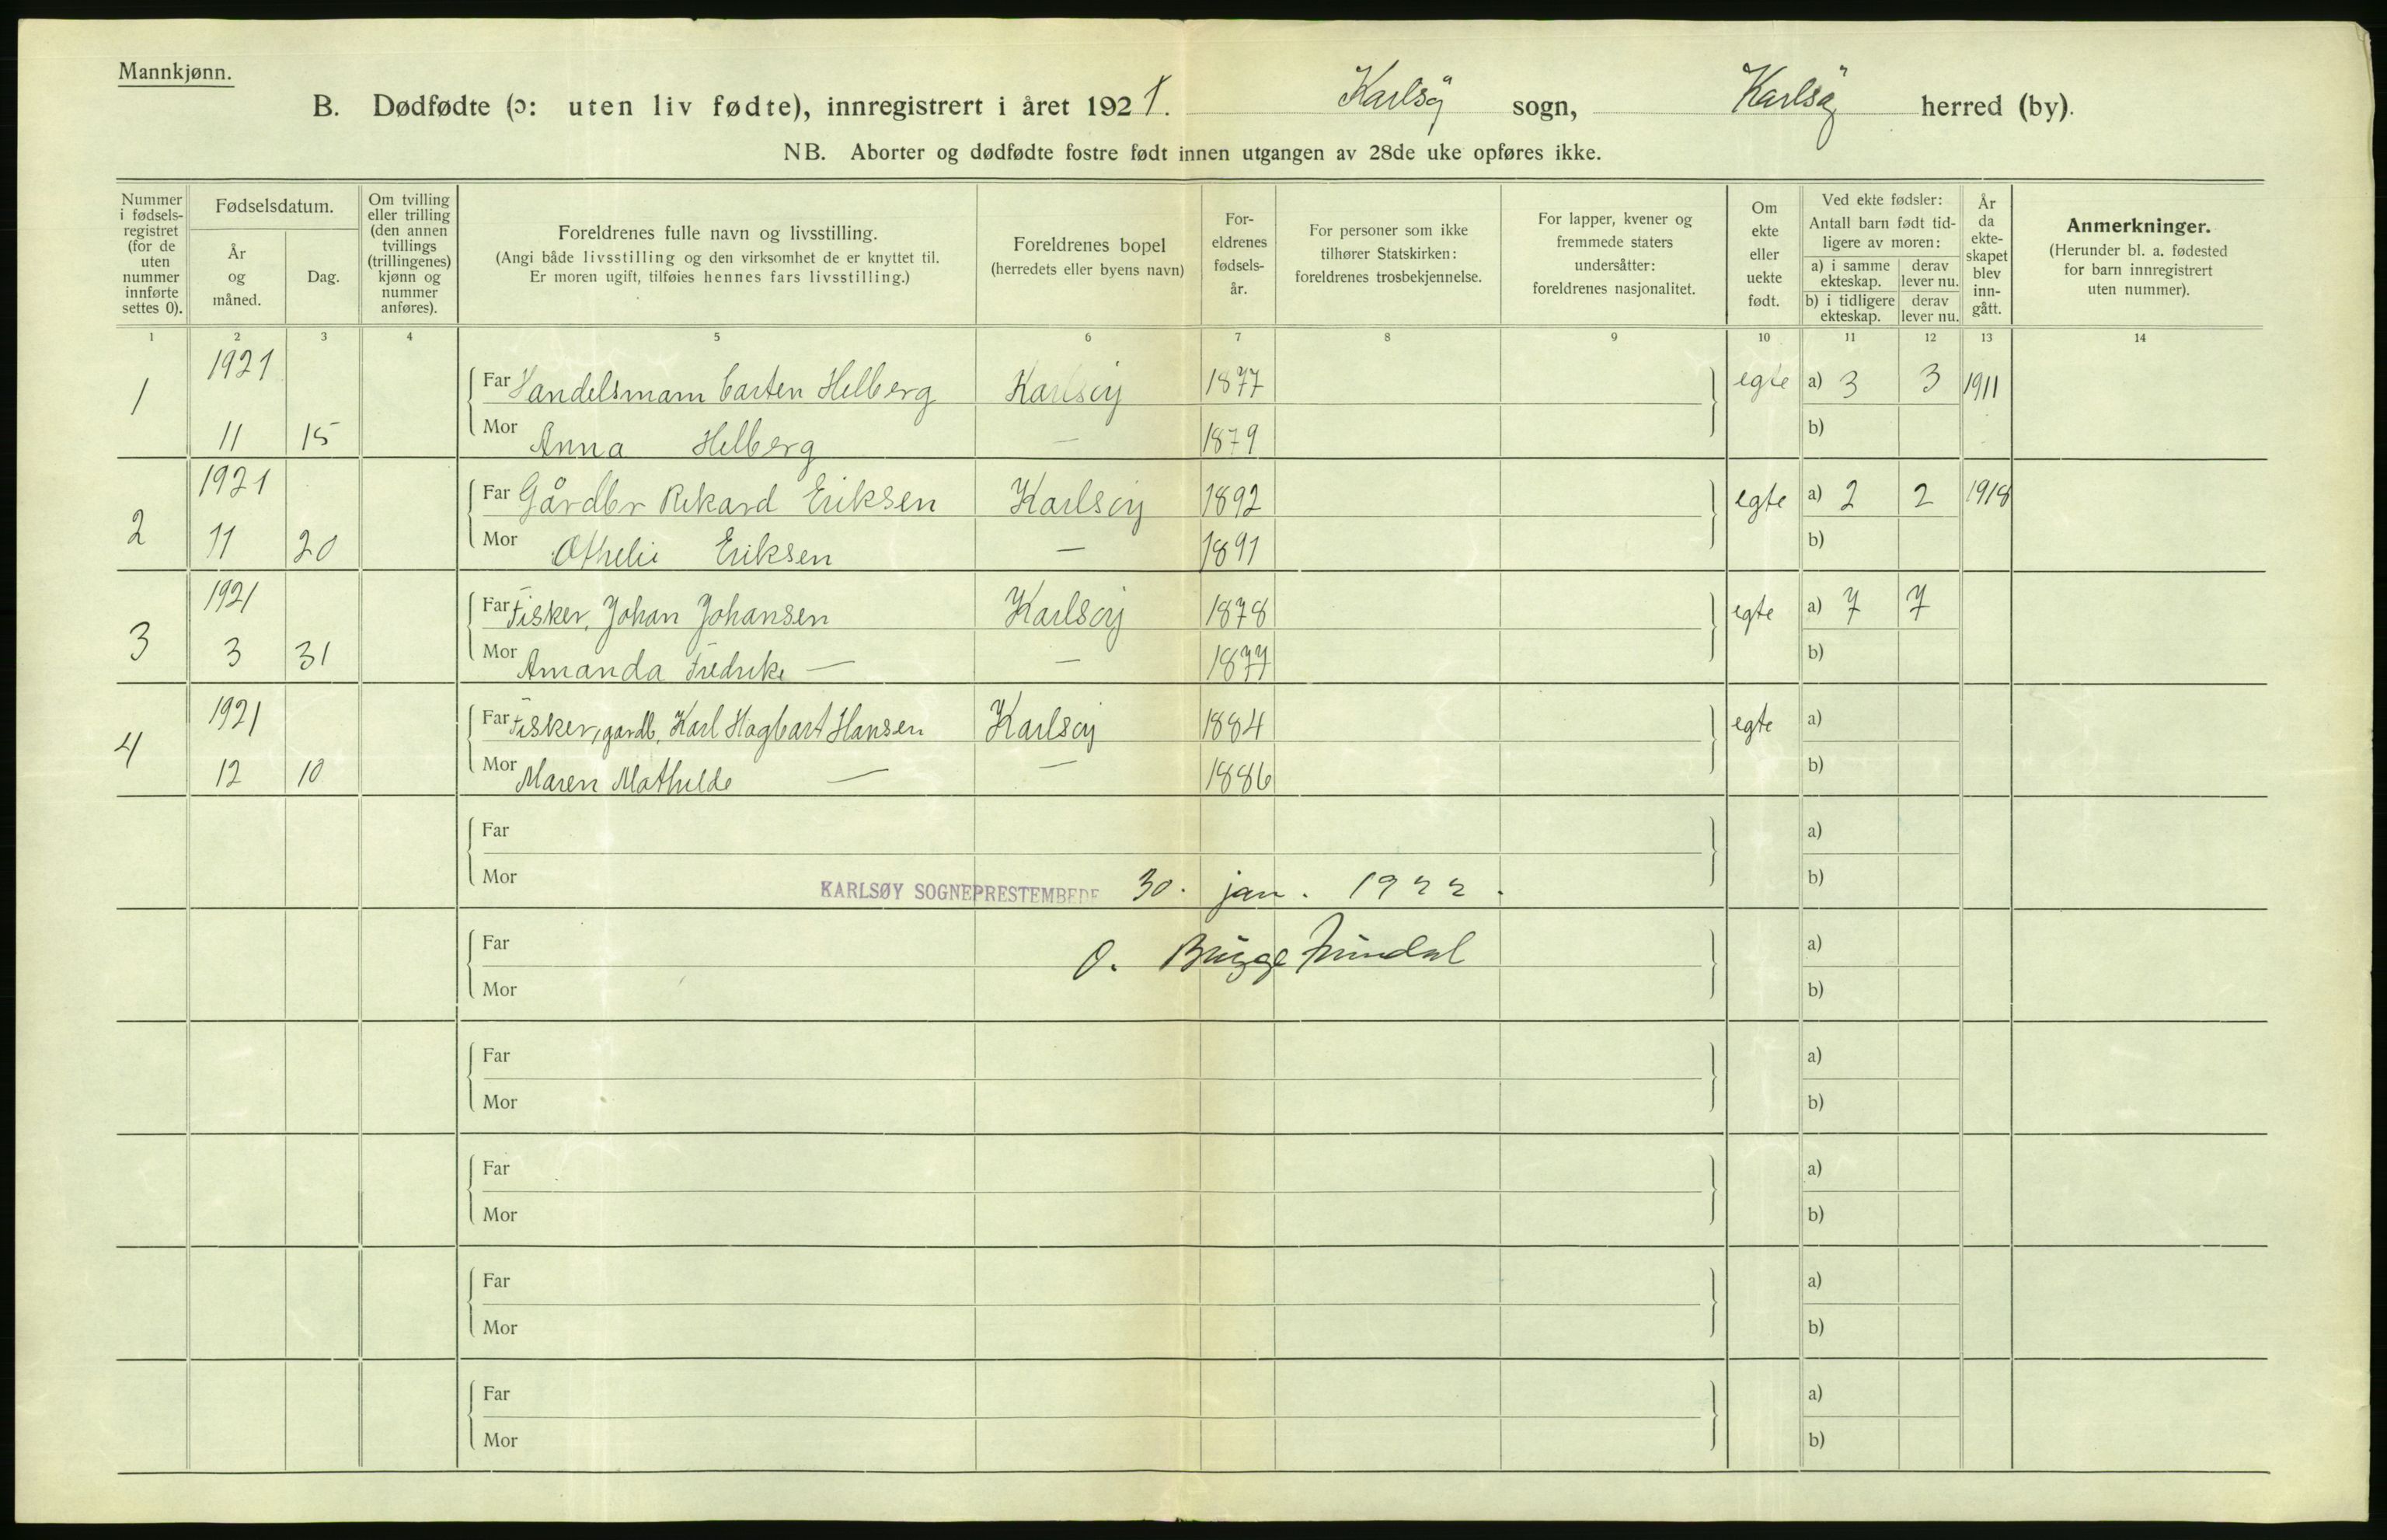 Mannkjønn.
B. Dødfødte (ɔ: uten liv fødte), innregistrert i året 1921. Karlsöy sogn, Karlsöy herred (by).
NB. Aborter og dødfødte fostre født innen utgangen av 28de uke opføres ikke.
Nummer i fødsels-registret (for de uten nummer innførte settes 0).
Fødselsdatum.
År og måned.
Dag.
Om tvilling eller trilling (den annen tvillings (trillingenes) kjønn og nummer anføres).
Foreldrenes fulle navn og livsstilling.
(Angi både livsstilling og den virksomhet de er knyttet til.
Er moren ugift, tilføies hennes fars livsstilling.)
Foreldrenes bopel
(herredets eller byens navn)
For-eldrenes fødsels-år.
For personer som ikke tilhører Statskirken: foreldrenes trosbekjennelse.
For lapper, kvener og fremmede staters undersåtter: foreldrenes nasjonalitet.
Om ekte eller uekte født.
Ved ekte fødsler:
Antall barn født tid-ligere av moren:
a) i samme ekteskap. derav lever nu.
b) i tidligere ekteskap. derav lever nu.
År da ekte-skapet blev inn-gått.
Anmerkninger.
(Herunder bl. a. fødested for barn innregistrert uten nummer).
1 2 3 4 5 6 7 8 9 10 11 12 13 14
1 1921 Far Handelsmann Carten Helberg Karlsöy 1877 egte a) 3 3 1911
11 15 Mor Anna Helberg — 1879 b)
2 1921 Far Gårdbr Rikard Eriksen Karlsöy 1892 egte a) 2 2 1918
11 20 Mor Othelie Eriksen — 1891 b)
3 1921 Far Fisker, Johan Johansen Karlsöy 1878 egte a) 7 7
3 31 Mor Amanda Fredrike — — 1877 b)
4 1921 Far Fisker, gardb, Karl Hagbart Hansen Karlsöy 1884 egte a)
12 10 Mor Maren Mathilde — — 1886 b)
Far a)
Mor b)
KARLSØY SOGNEPRESTEMBEDE 30. jan. 1922.
Far a)
O. Brügge
Mor b)
Far a)
Mor b)
Far a)
Mor b)
Far a)
Mor b)
Far a)
Mor b)